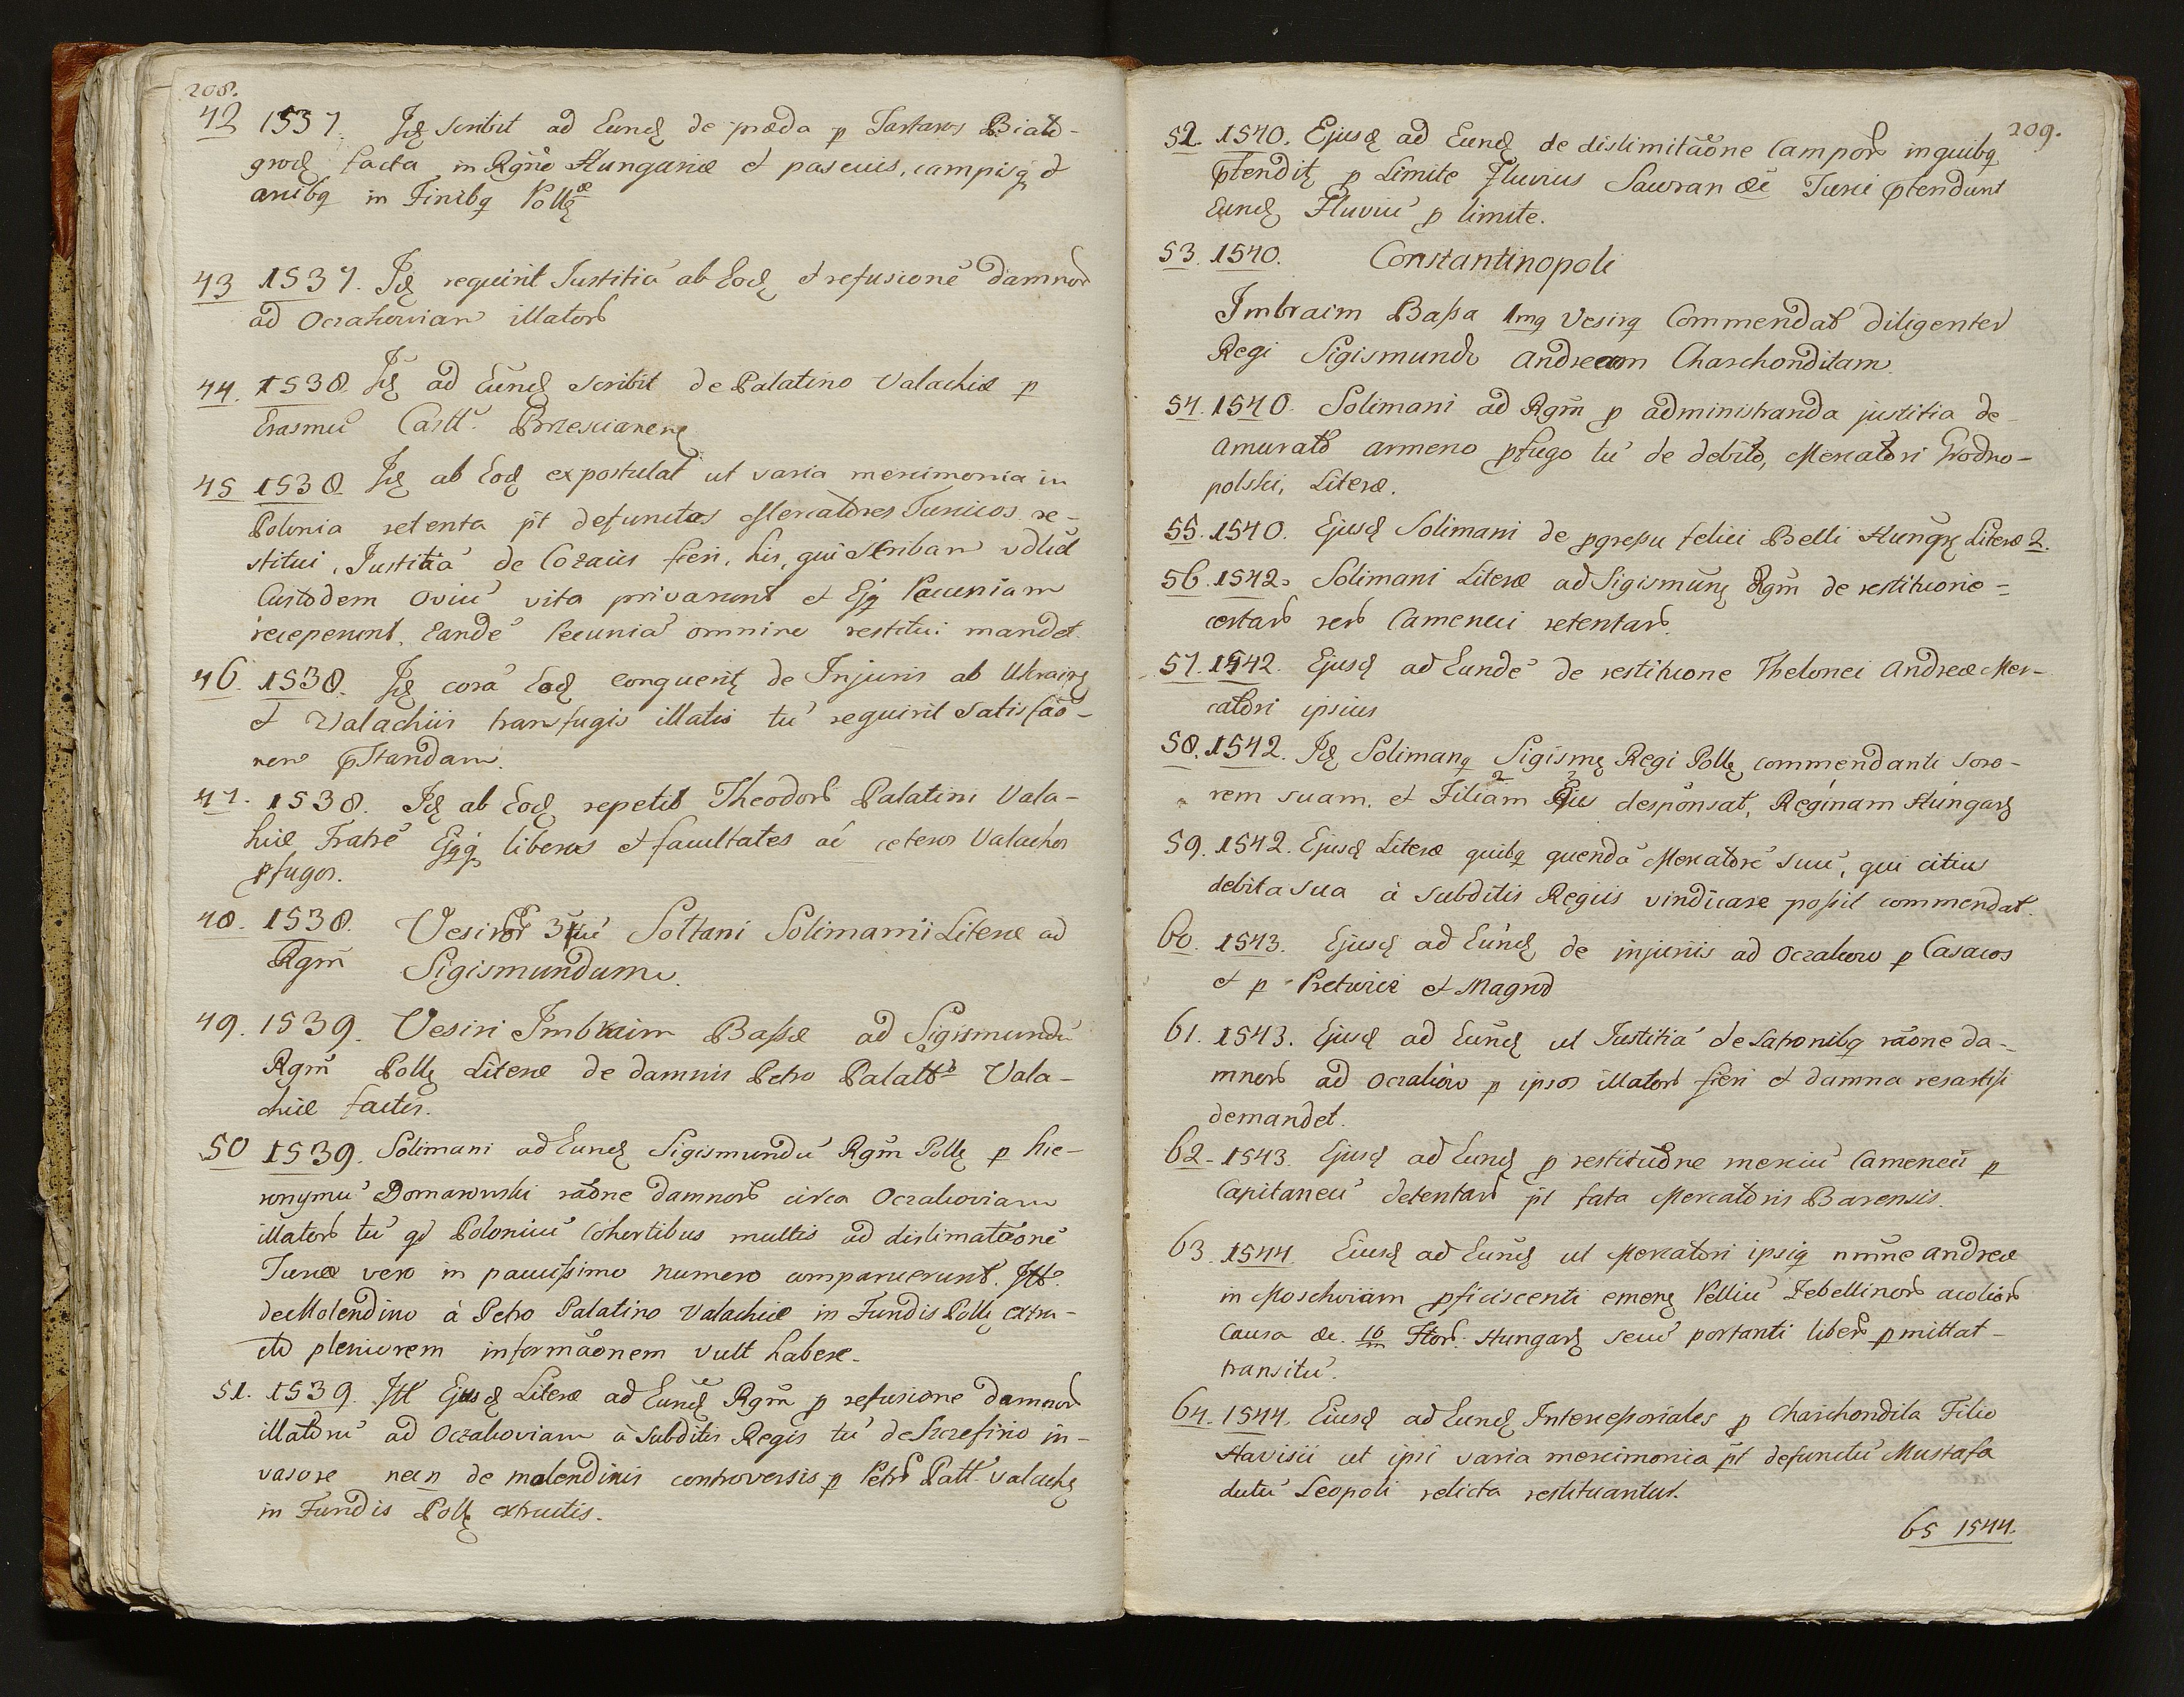 208.
42 1537. Idę scribit ad Eundę de præda p Tartaros Biało-
grodę facta in Rgno Hungariæ et pascuis, campisq et
anibq in Finibq Pollę
43 1537. Idę requirit Justitiā ab Eodę et refusionē damnor
ad Oczakowian illator
44. 1538. Idę ad Eundę scribit de Palatino Valachiæ p
Erasmū Castt. Brzescianenę
45 1538. Idę ab Eodę expostulat ut varia mercimonia in
Polonia retenta pt defunctos Mercatores Turcicos re-
stitui, Justitiā de Cozacis fieri, his, qui Striban
Custodem Oviū vita privarunt et Ejq Pecuniam
receperunt, Eandē Pecuniā omnino restitui mandet.
46. 1538. Idę corā Eodę conqueritę de Injuriis ab Ukrainę
et Valachiis transfugis illatis tū requirit Satisfao-
nem pstandam.
47. 1538. Idę ab Eodę repetit Theodori Palatini Vala-
hiæ Fratrē Ejqq liberos et facultates ac ceteros Valachos
pfugos.
48. 1538. Vesiror 3iū Soltani Solimanii Literæ ad
Rgm Sigismundum.
49. 1539. Vesiri Imbraim Baßæ ad Sigismundū
Rgm Pollę Literæ de damnis Petro Palatto Vala-
chiæ factis.
50 1539. Solimani ad Eundę Sigismundū Rgm Pollę p Hie-
ronymū Domarowski raōne damnor circa Oczakoviam
illator tū qd Poloniū Cohortibus multis ad dislimataōnē
Turcæ vero in paucißimo numero comparuerunt. Itt.
de Molendino à Petro Palatino Valachiæ in Fundis Pollę extru-
cto pleniorem informaōnem vult habere.
51. 1539. Itt Ejusdę Literæ ad Eundę Rgm p refusione damnor
illatorū ad Oczakoviam à Subditis Regis tū de Szczefirio in-
vasore necn de molendinis controversis p Petrū Patt. Valachę
in Fundis Pollę extructis.
209.
52. 1540. Ejusdę ad Eundę de dislimitaōne Campor in quibq
ptenditę p Limite Fluvius Sawran &c Turci ptendunt
Eundę Fluviū p limite.
53. 1540. Constantinopoli
Imbraim Baßa 1mq Vesirq Commendat diligenter
Regi Sigismundo Andream Charchonditam.
54. 1540. Solimani ad Rgm p administranda justitia de
Amurato armeno pfugo tū de debito, Mercatori Grodno-
polski, Literæ.
55. 1540. Ejusdę Solimani de pgreßu felici Belli Hungę Literæ 2.
56. 1542. Solimani Literæ ad Sigismunę Rgm de restituone-
certar rer Camenei retentar.
57. 1542. Ejusdę ad Eundē de restituone Thelonei Andreæ Mer-
catori ipsius
58. 1542. Idę Solimanq Sigismę Regi Pollę commendanti Soro-
rem suam, et Filiam Ejus desponsat, Reginam Hungarę
59. 1542. Ejusdę Literæ quibq quendā Mercatorē suū, qui citius
debita sua à subditis Regiis vindicare poßit commendat.
60. 1543. Ejusdę ad Eundę de injuriis ad Oczakow p Casacos
et p Pretwicz et Magnd
61. 1543. Ejusdę ad Eundę ut Justitiā de Latronibq raōne da-
mnor ad Oczakow p ipsos illator fieri et damna resartiſi
demandet.
62. 1543. Ejusdę ad Eundę p restituōne merciū Camenecii p
Capitaneū detentar pt fata Mercatoris Barensis.
63. 1544. Ejusdę ad Eundę ut Mercatori ipsiq nmne Andreæ
in Moschoviam pficiscenti emenę Pelliū Zebellinor
causa &c. 16/m Flor. Hungarę secū portanti liberē pmittat-
transitū.
64. 1544. Ejusdę ad Eundę Interceßoriales p Charchondila Filio
Stavisii ut ipsi varia mercimonia pt defunctū Mustafa
dutū Leopoli relicta restituantur.
65 1544.